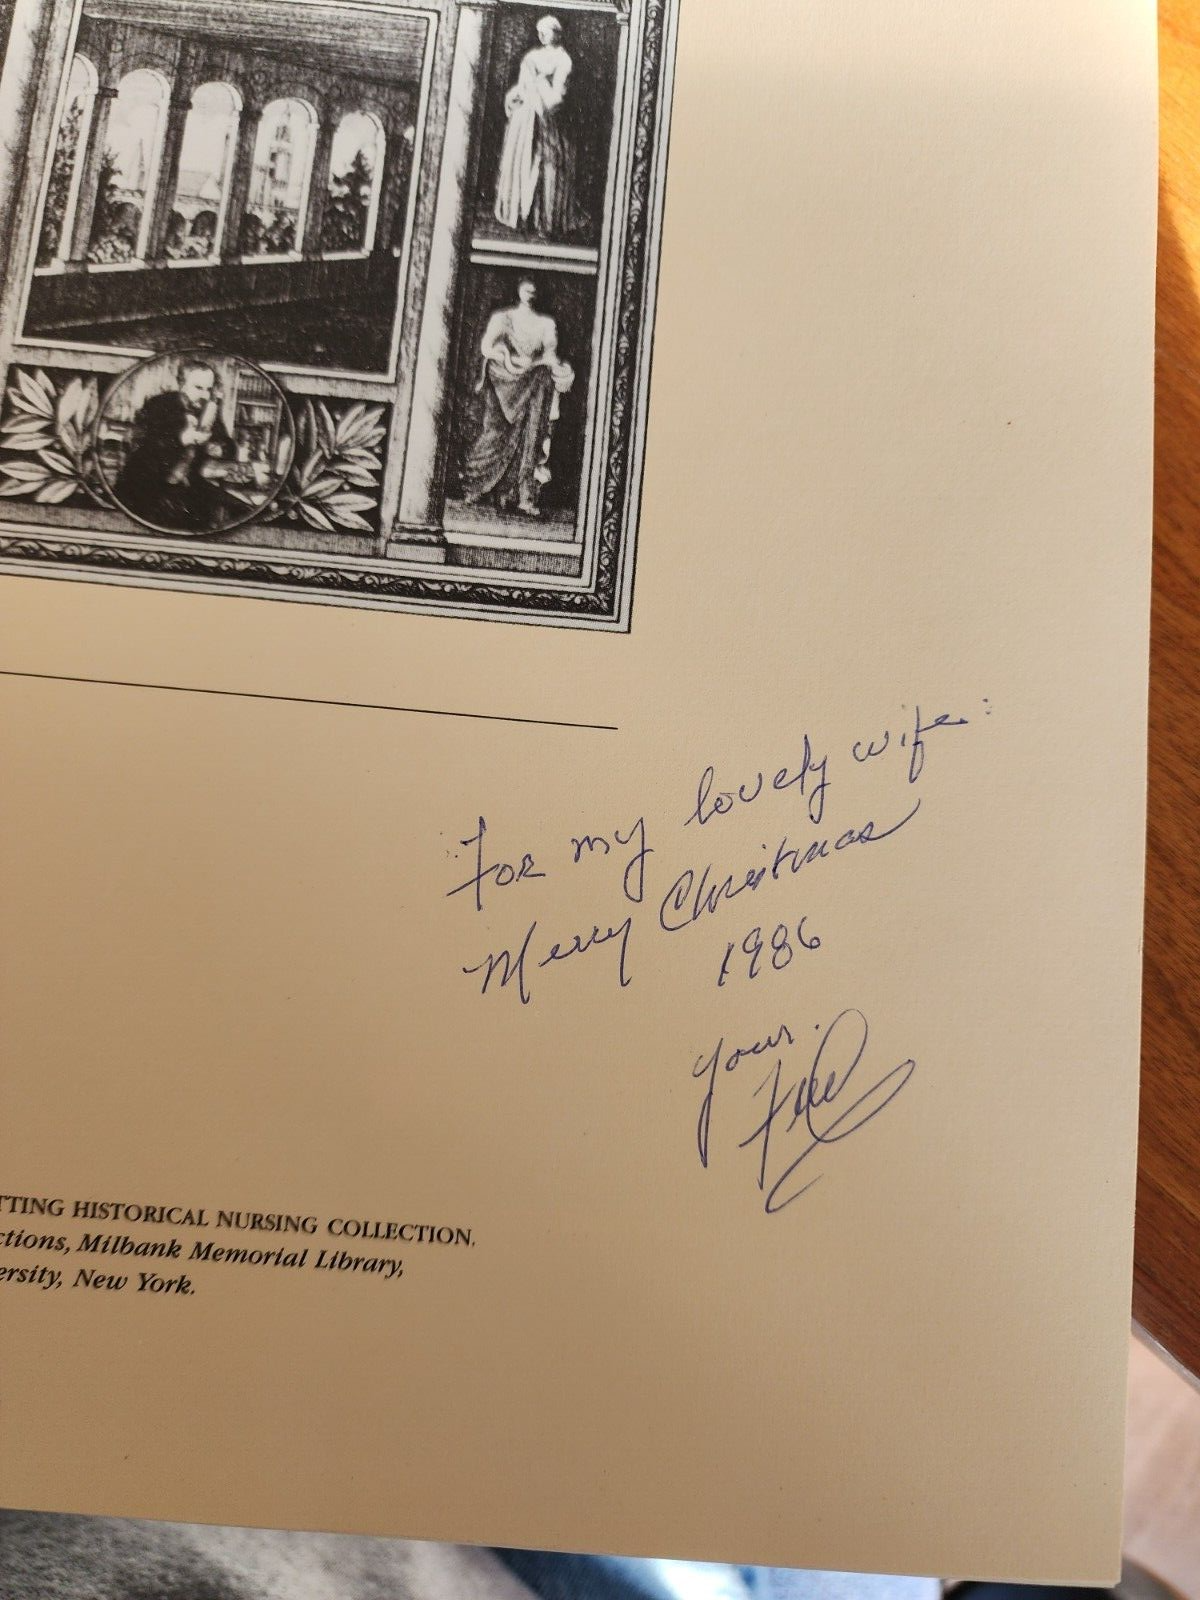 For my lovely wife:
Merry Christmas
1986
your.
TTING HISTORICAL NURSING COLLECTION.
ctions, Milbank Memorial Library,
ersity, New York.